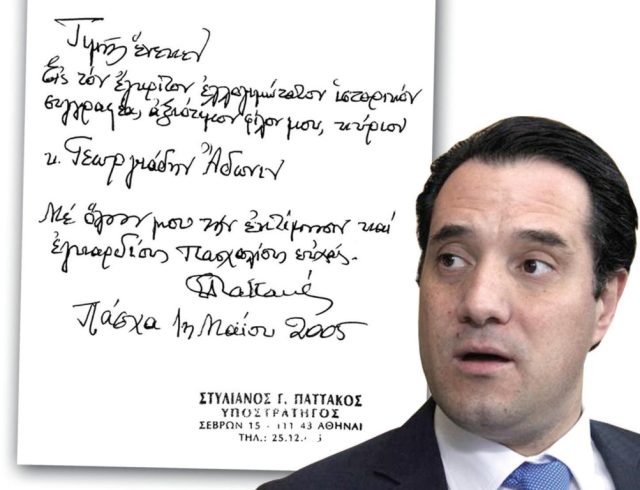 Τιμῆς ἕνεκεν
Εἰς τόν ἔγκριτον ἐλλογιμώτατον ἱστορικόν
συγγραφέα, ἀξιότιμον φίλον μου, κύριον
κ. Γεωργιάδην Ἄδωνιν
Μέ ὅλην μου τήν ἐκτίμησιν καί
ἐγκαρδίους πασχαλίους εὐχάς.
Παττακός
Πάσχα 1η Μαΐου 2005
ΣΤΥΛΙΑΝΟΣ Γ. ΠΑΤΤΑΚΟΣ
ΥΠΟΣΤΡΑΤΗΓΟΣ
ΣΕΒΡΩΝ 15 - 111 43 ΑΘΗΝΑΙ
ΤΗΛ.: 25.12.